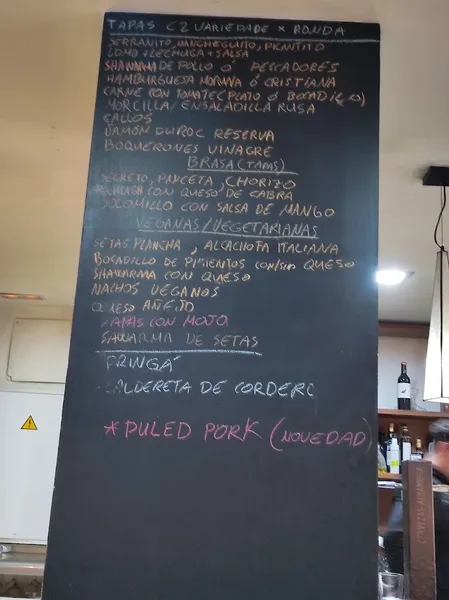 TAPAS C2 VARIEDADE X RONDA
SERRANITO, MANCHEGUITO, PICANTITO
LOMO + LECHUGA + SALSA
SHAWARMA DE POLLO ó PESCADORES
HAMBURGUESA MORUNA ó CRISTIANA
CARNE CON TOMATE (PLATO ó
MORCILLA / ENSALADILLA RUSA
CALLOS
JAMÓN DUROC RESERVA
BOQUERONES VINAGRE
BRASA (TAPAS)
SECRETO, PANCETA, CHORIZO
CON QUESO DE CABRA
SOLOMILLO CON SALSA DE MANGO
VEGANAS / VEGETARIANAS
SETAS PLANCHA, ALCACHOFA ITALIANA
BOCADILLO DE PIMIENTOS CON/SIN QUESO
SHAWARMA CON QUESO
NACHOS VEGANOS
QUESO AÑEJO
PAPAS CON MOJO
SAWARMA DE SETAS
PRINGÁ
CALDERETA DE CORDERO
*PULED PORK (NOVEDAD)